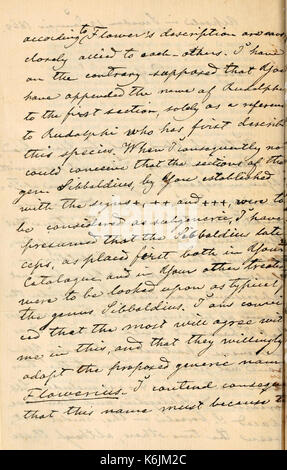 according to Flower's description are very
closely allied to each-others. I have
on the contrary supposed that You
have appended the name of Rudolphi
to the first section, solely as a reference
to Rudolphi who has first describ
this species. When I consequently no
could conceive that the sections of the
gen. Sibbaldius, by You established
with the signs +, ++ and +++, were to
be considered as subgeneric, I have
presumed that the Sibbaldius lati
ceps, as placed first both in Your
Catalogue and in Your other treati
were to be looked upon as typical
the genus Sibbaldius. I am convin
ced that the most will agree with
me in this, and that they willingly
adopt the proposed generic name
Flowerius. I contend conseque
that this name must because t
alamy
Image ID: K6JM2C
www.alamy.com